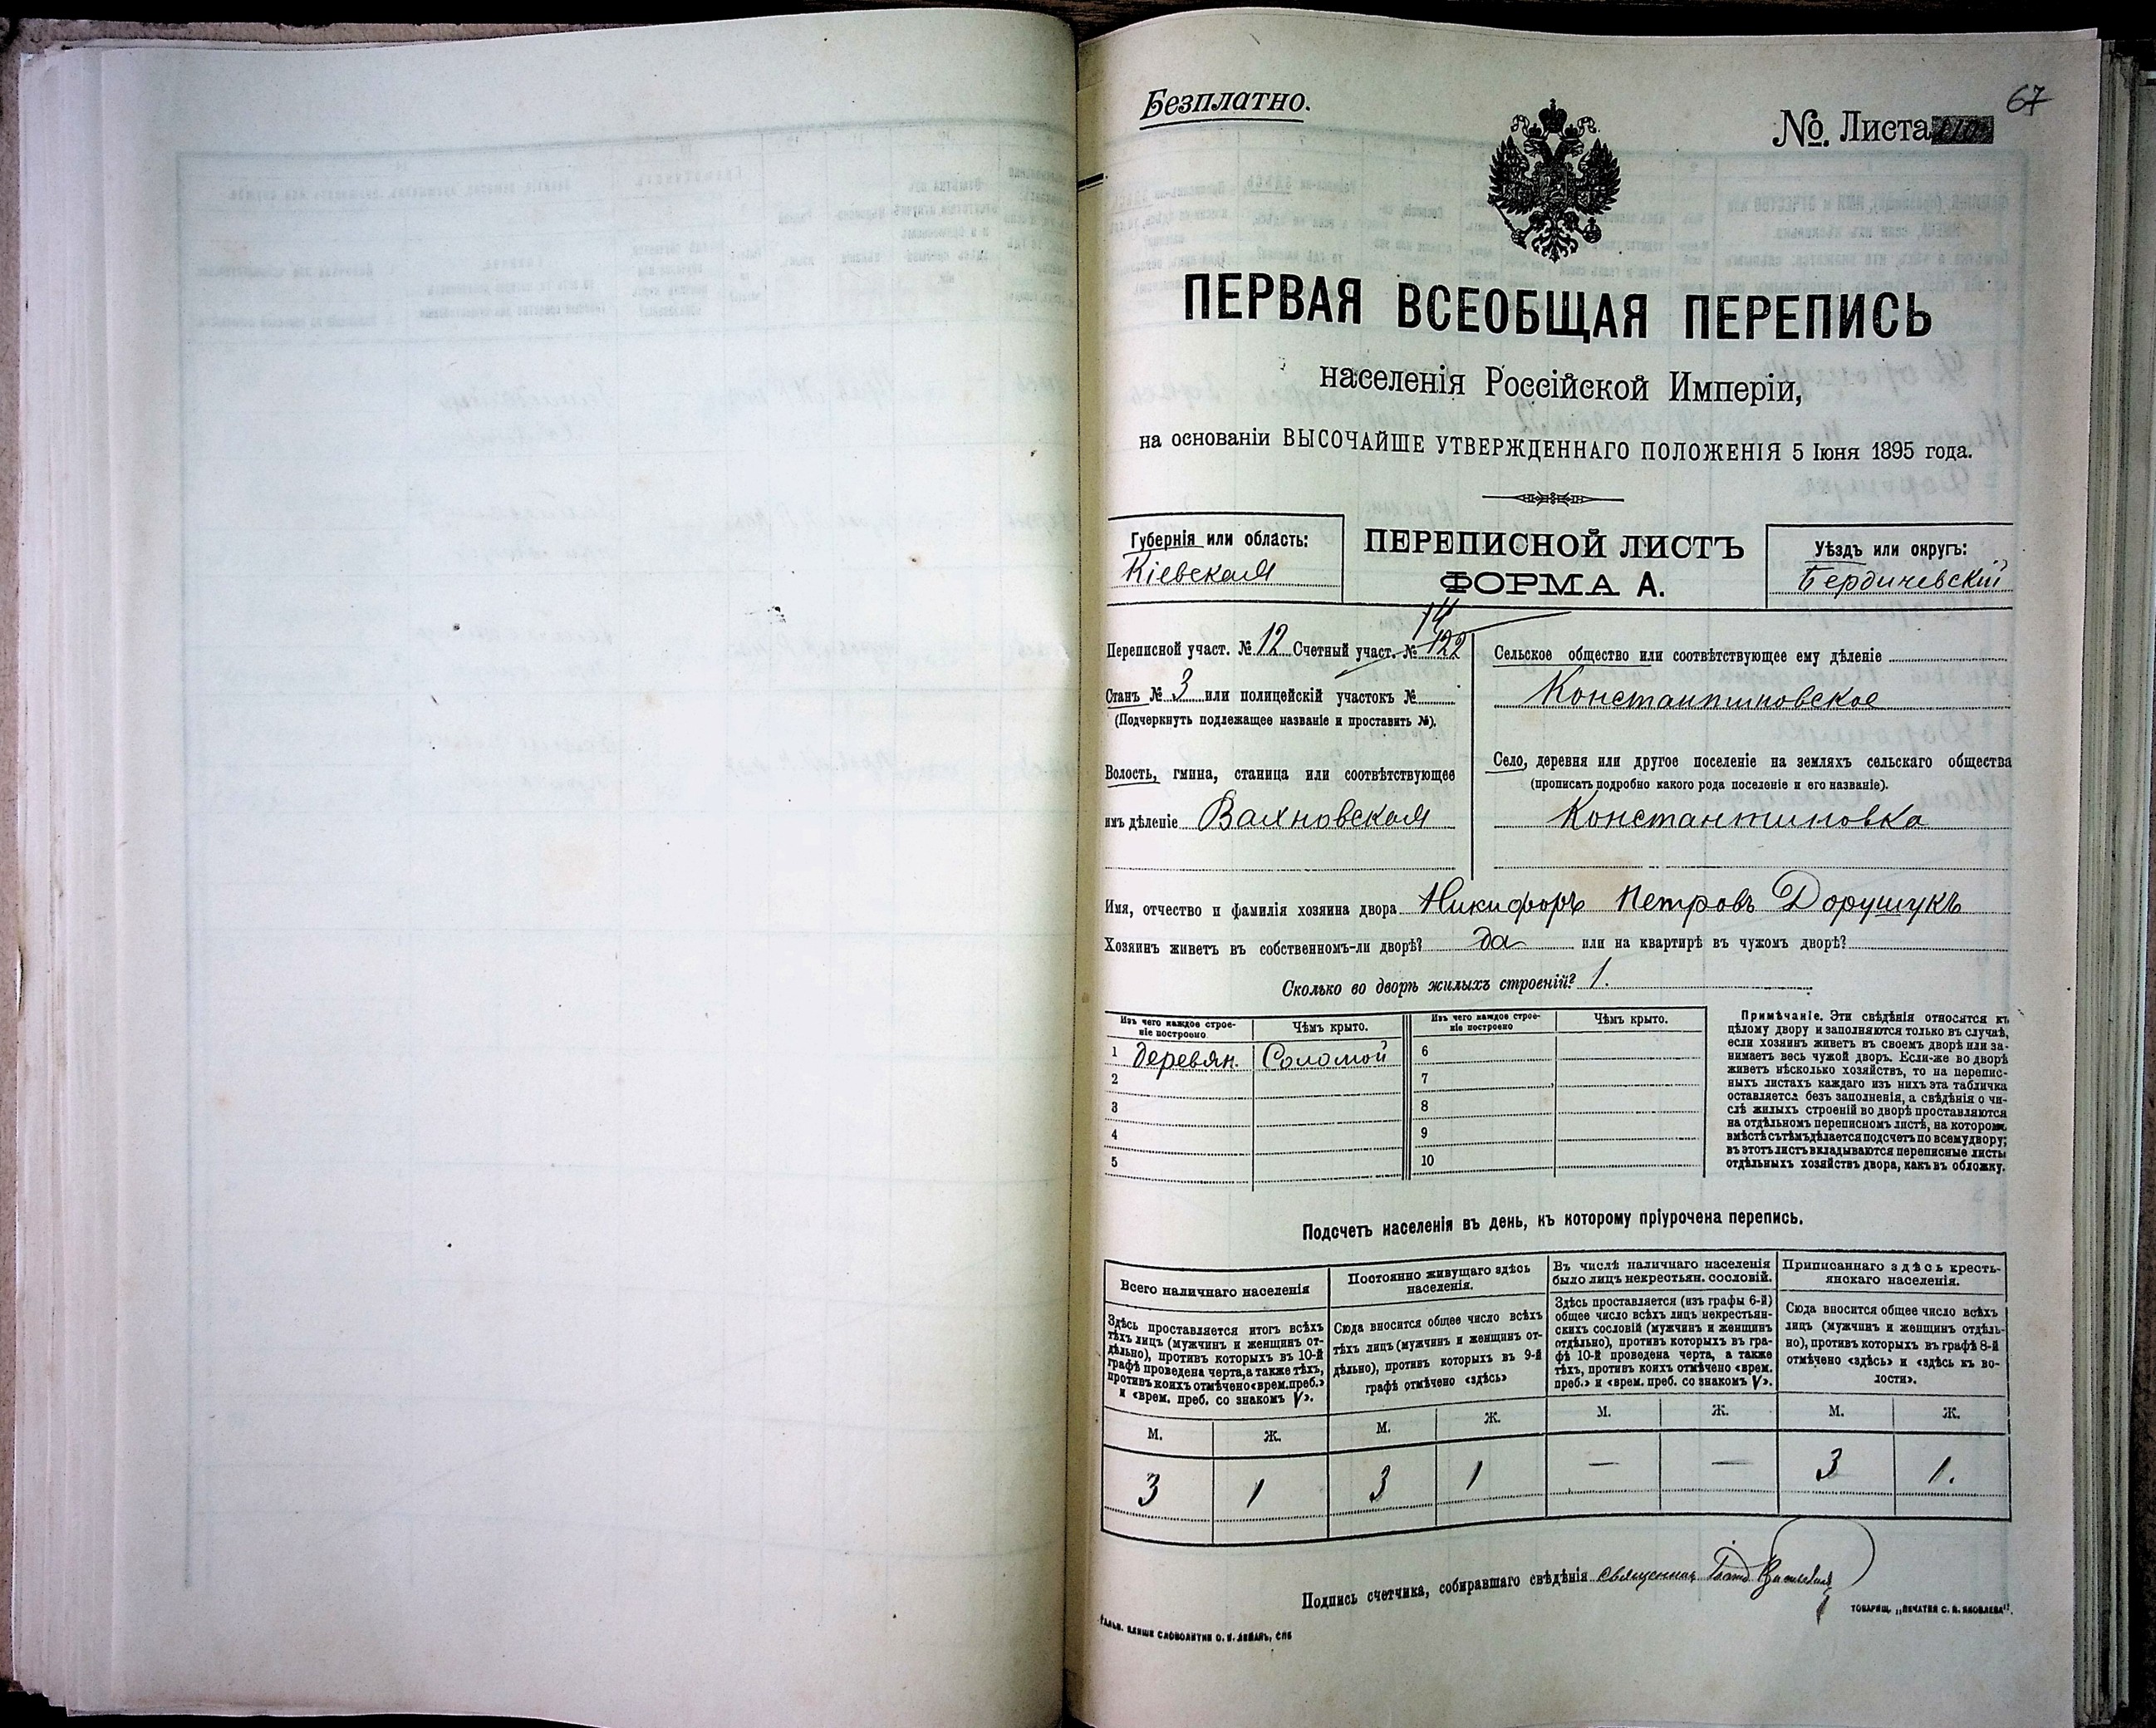 67
Безплатно.
№ Листа
ПЕРВАЯ ВСЕОБЩАЯ ПЕРЕПИСЬ
населенія Россійской Имперіи,
на основаніи ВЫСОЧАЙШЕ УТВЕРЖДЕННАГО ПОЛОЖЕНІЯ 5 Іюня 1895 года.
Губернія или область:
Кіевская
ПЕРЕПИСНОЙ ЛИСТЪ
ФОРМА А.
Уѣздъ или округъ:
Бердичевскій
14
Переписной участ. № 12 Счетный участ. № 122
Станъ № 3 или полицейскій участокъ №
(Подчеркнуть подлежащее названіе и проставить №).
Волость, гмина, станица или соотвѣтствующее
имъ дѣленіе Вахновская
Сельское общество или соотвѣтствующее ему дѣленіе
Константиновское
Село, деревня или другое поселеніе на земляхъ сельскаго общества
(прописать подробно какого рода поселеніе и его названіе).
Константиновка
Имя, отчество и фамилія хозяина двора Никифоръ Петровъ Дорушукъ
Хозяинъ живетъ въ собственномъ-ли дворѣ? да или на квартирѣ въ чужомъ дворѣ?
Сколько во дворѣ жилыхъ строеній? 1.
Изъ чего каждое строе-
ніе построено
Чѣмъ крыто.
Изъ чего каждое строе-
ніе построено
Чѣмъ крыто.
1 деревян. Соломой 6
2 7
3 8
4 9
5 10
Примѣчаніе. Эти свѣдѣнія относятся къ
цѣлому двору и заполняются только въ случаѣ,
если хозяинъ живетъ въ своемъ дворѣ или за-
нимаетъ весь чужой дворъ. Если-же во дворѣ
живетъ нѣсколько хозяйствъ, то на перепис-
ныхъ листахъ каждаго изъ нихъ эта табличка
оставляется безъ заполненія, а свѣдѣнія о чи-
слѣ жилыхъ строеній во дворѣ проставляются
на отдѣльномъ переписномъ листѣ, на которомъ
вмѣстѣ съ тѣмъ дѣлается подсчетъ по всему двору;
въ этотъ листъ вкладываются переписные листы
отдѣльныхъ хозяйствъ двора, какъ въ обложку.
Подсчетъ населенія въ день, къ которому пріурочена перепись.
Всего наличнаго населенія
Здѣсь проставляется итогъ всѣхъ
тѣхъ лицъ (мужчинъ и женщинъ от-
дѣльно), противъ которыхъ въ 10-й
графѣ проведена черта, а также тѣхъ,
противъ коихъ отмѣчено «врем. преб.»
и «врем. преб. со знакомъ V».
Постоянно живущаго здѣсь
населенія.
Сюда вносится общее число всѣхъ
тѣхъ лицъ (мужчинъ и женщинъ от-
дѣльно), противъ которыхъ въ 9-й
графѣ отмѣчено «здѣсь»
Въ числѣ наличнаго населенія
было лицъ некрестьян. сословій.
Здѣсь проставляется (изъ графы 6-й)
общее число всѣхъ лицъ некрестьян-
скихъ сословій (мужчинъ и женщинъ
отдѣльно), противъ которыхъ въ гра-
фѣ 10-й проведена черта, а также
тѣхъ, противъ коихъ отмѣчено «врем.
преб.» и «врем. преб. со знакомъ V».
Приписаннаго здѣсь кресть-
янскаго населенія.
Сюда вносится общее число всѣхъ
лицъ (мужчинъ и женщинъ отдѣль-
но), противъ которыхъ въ графѣ 8-й
отмѣчено «здѣсь» и «здѣсь къ во-
лости».
М. Ж. М. Ж. М. Ж. М. Ж.
3 1 3 1 — — 3 1.
Подпись счетчика, собиравшаго свѣдѣнія священник
ТОВАРИЩ. „ПЕЧАТНЯ С. П. ЯКОВЛЕВА".